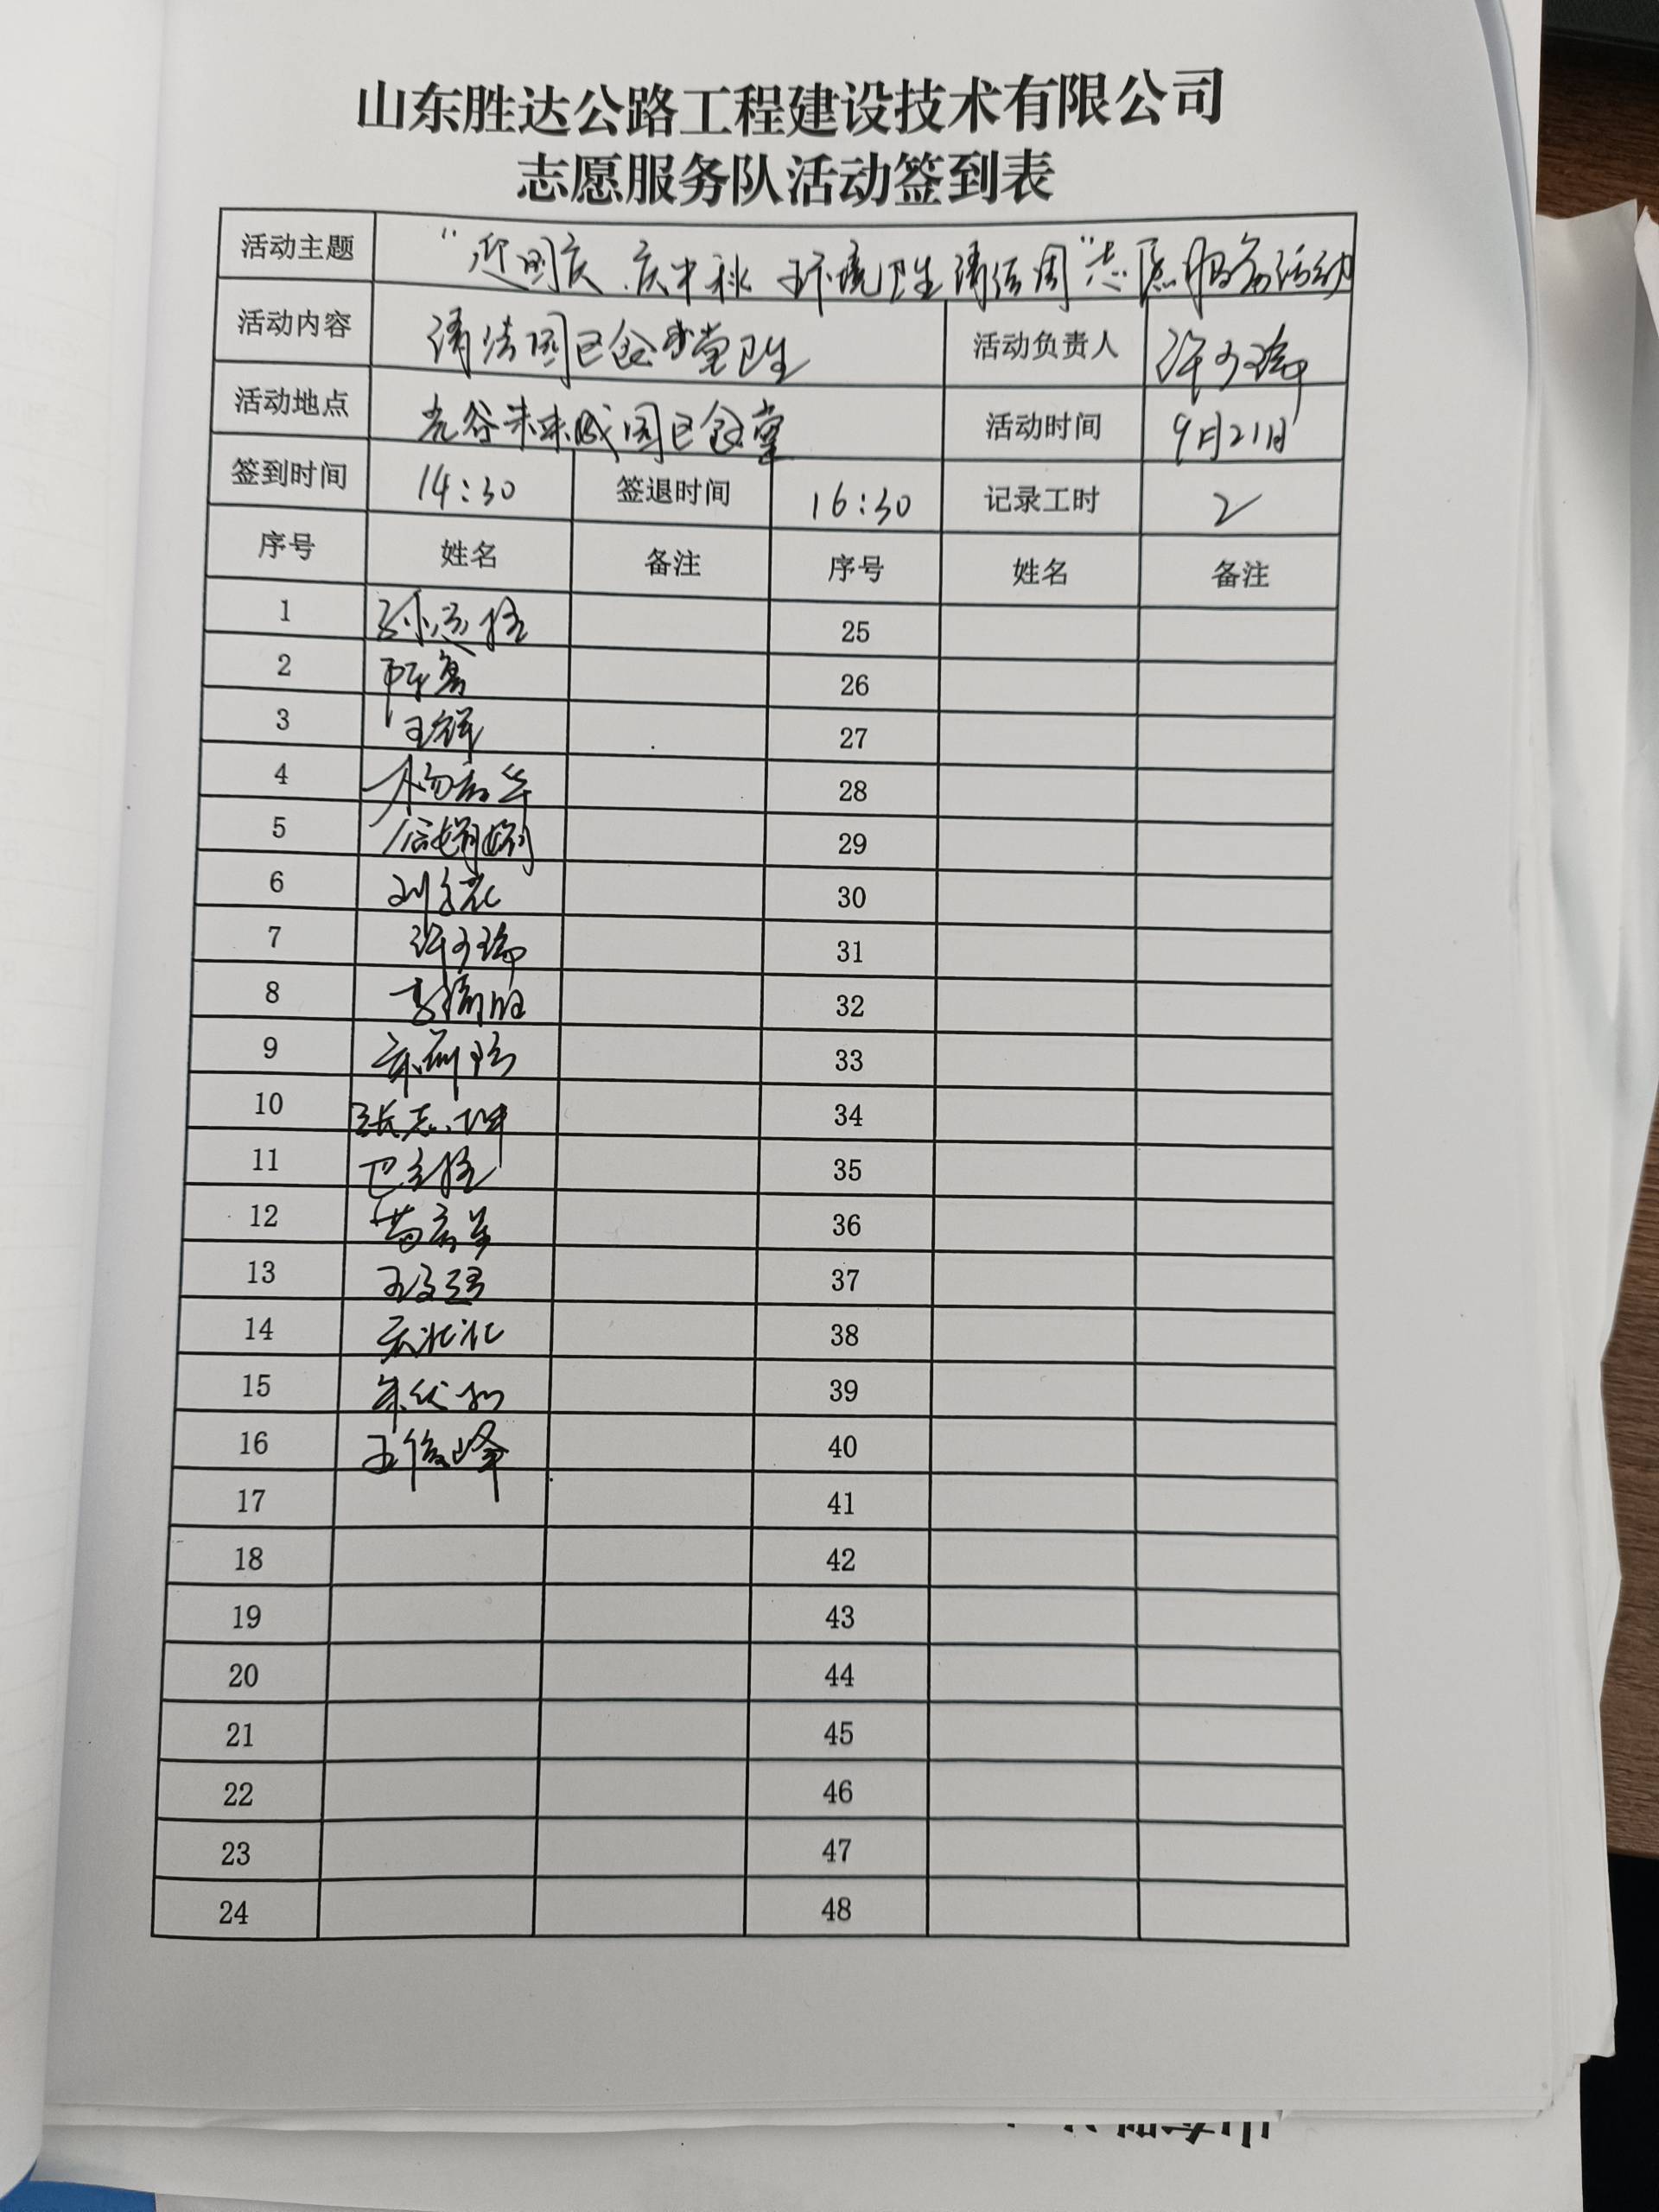 山东胜达公路工程建设技术有限公司
志愿服务队活动签到表
活动主题 "迎国庆、庆中秋 环境卫生清洁周"志愿服务活动
活动内容 清洁园区食堂卫生 活动负责人
活动地点 光谷未来城园区食堂 活动时间 9月21日
签到时间 14:30 签退时间 16:30 记录工时 2
序号 姓名 备注 序号 姓名 备注
1 25
2 26
3 王祥 27
4 28
5 29
6 30
7 31
8 32
9 33
10 张志坤 34
11 35
12 36
13 37
14 38
15 39
16 王俊峰 40
17 41
18 42
19 43
20 44
21 45
22 46
23 47
24 48